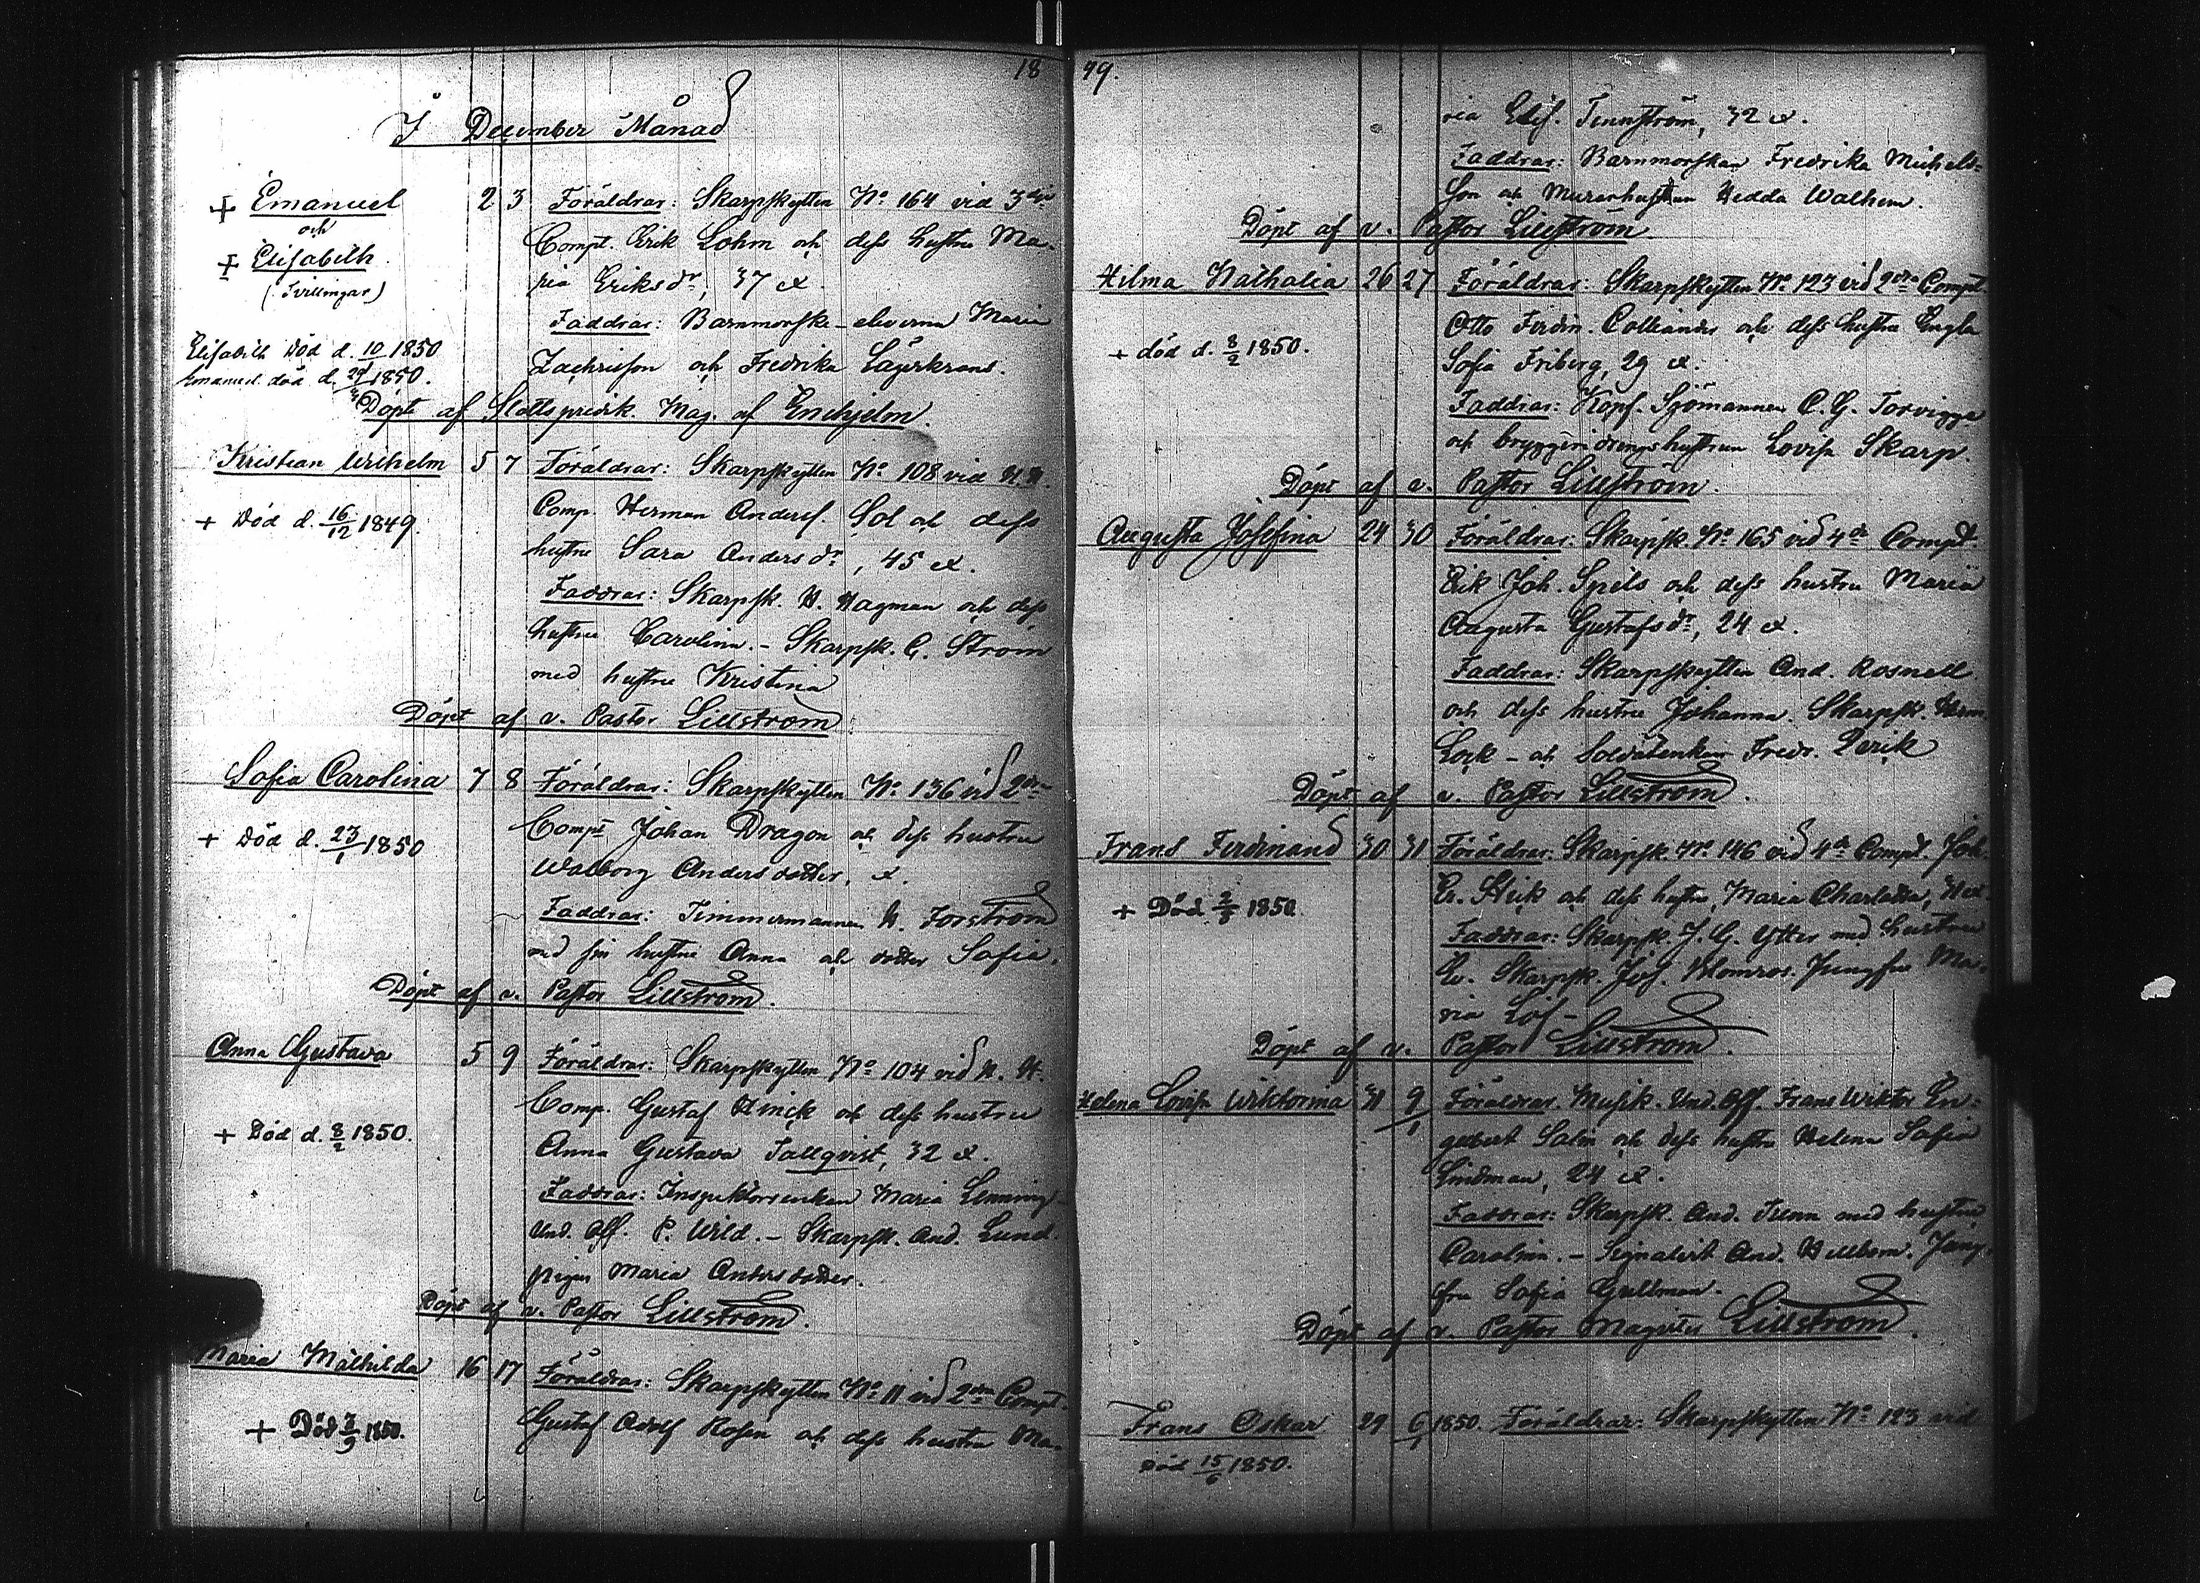 18 49.
I December Månad
+ Emanuel 2 3 Föräldrar: Skarpskytten No 164 vid 3dje
och
Compt. Erik Lohm och dess hustru Ma-
+ Elisabeth
(Tvillingar)
ria Eriksdr, 37 ex.
Faddrar: Barnmorske-eleverna Maria
Elisabeth Död d. 10/1 1850
Zachrisson och Fredrika Lagerkrans.
Emanuel död d. 1850.
Döpt af Slottspredik. Mag. af Enehjelm.
Kristian Wilhelm 5 7 Föräldrar: Skarpskytten No 108 vid
+ Död d. 16/12 1849.
Comp. Herman Andersf. Sol och dess
hustru Sara Andersdr, 45 ex.
Faddrar: Skarpsk. H. Hagman och dess
hustru Carolina. - Skarpsk. C. Ström
med hustru Kristina
Döpt af v. Pastor Lillström
Sofia Carolina 7 8 Föräldrar: Skarpskytten No 136 vid 2dra
+ Död d. 23/1 1850
Compt Johan Dragon och dess hustru
Walborg Andersdotter, ex.
Faddrar: Timmermannen Forström
med sin hustru Anna och dotter Sofia.
Döpt af v. Pastor Lillström.
Anna Gustava 5 9 Föräldrar: Skarpskytten No 104 vid
Comp. Gustaf Hinck och dess hustru
+ Död d. 8/2 1850.
Anna Gustava Tallqvist, 32 ex.
Faddrar: Inspektorsenkan Maria Lenning-
Und. Off. P. Wild. - Skarpsk. And. Lund.
pigan Maria Andersdotter.
Döpt af v. Pastor Lillström.
Maria Mathilda 16 17 Föräldrar: Skarpskytten No 11 vid 2dra Compt.
+ Död 1850.
Gustaf Adolf Rosén och dess hustru Ma-
ria Elis. Tennström, 32 ex.
Faddrar: Barnmorskan Fredrika Michels-
son och Murarhustrun Hedda Walhem.
Döpt af v. Pastor Lillström
Hilma Nathalia 26 27 Föräldrar: Skarpskytten No 123 vid 2dra Compt
Otto Ferdin. Colliander och dess hustru Engla
+ död d. 8/2 1850.
Sofia Friberg, 29 ex.
Faddrar: Kopf. Sjömannen C. G. Torvigge
och bryggeridrengshustrun Lovisa Skarp.
Döpt af v. Pastor Lillström.
Augusta Josefina 24 30 Föräldrar: Skarpsk. No 165 vid 4de Compt.
Erik Joh. Spils och dess hustru Maria
Augusta Gustafsdr, 24 ex.
Faddrar: Skarpskytten And. Rosnell
och dess hustru Johanna. Skarpsk. Herm.
Lock - och Soldatenkan Fredr. Perik
Döpt af v. Pastor Lillström.
Frans Ferdinand 30 31 Föräldrar: Skarpsk. No 146 vid 4de Compt. Joh.
Er. Stick och dess hustru, Maria Charlotta,
+ Död 1850.
Faddrar: Skarpsk. J. G. Ytter med hustru
Ev. Skarpsk. Jos. Blomros. Jungfru Ma-
ria Löf-
Döpt af v. Pastor Lillström.
Helena Lovisa Wiktorina 31 9/1 Föräldrar. Musik. Und. Off. Frans Wiktor En-
gelbert Salin och dess hustru Helena Sofia
Lindman, 24 ex.
Faddrar: Skarpsk. And. Tenn med hustru
Carolina. - Signalist And. Hellbom. Jung-
fru Sofia Gullman.
Döpt af v. Pastor Magister Lillström.
Frans Oskar 29 6/1 1850. Föräldrar: Skarpskytten No 123 vid
Död 15/6 1850.